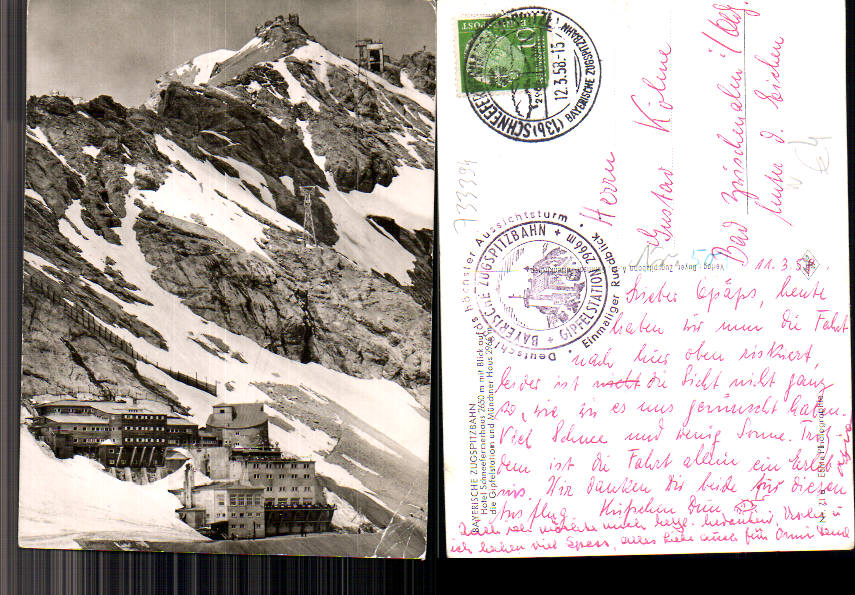 (13b) SCHNEEFERNERHAUS
BAYERISCHE ZUGSPITZBAHN
12.3.58.-15
DEUTSCHE BUNDESPOST
10
733394
Herrn
Gustav Köhne
Bad Zwischenahn i/Oldg.
Unter d. Eichen
Deutschlands höchster Aussichtsturm
Einmaliger Rundblick
BAYERISCHE ZUGSPITZBAHN
GIPFELSTATION 2966m
BAYERISCHE ZUGSPITZBAHN
Hotel Schneefernerhaus 2650 m mit Blick auf
die Gipfelstation und Münchner Haus 2966 m
11.3.58.
Lieber Opaps, heute
haben wir nun die Fahrt
nach hier oben riskiert,
leider ist nicht die Sicht nicht ganz
so, wie wir es uns gewünscht haben.
Viel Schnee und wenig Sonne. Trotz-
dem ist die Fahrt allein ein Erleb-
nis. Wir danken Dir beide für diesen
Ausflug. Küßchen Dein
ich haben viel Spass, alles Liebe auch für Omi
Echte Photographie